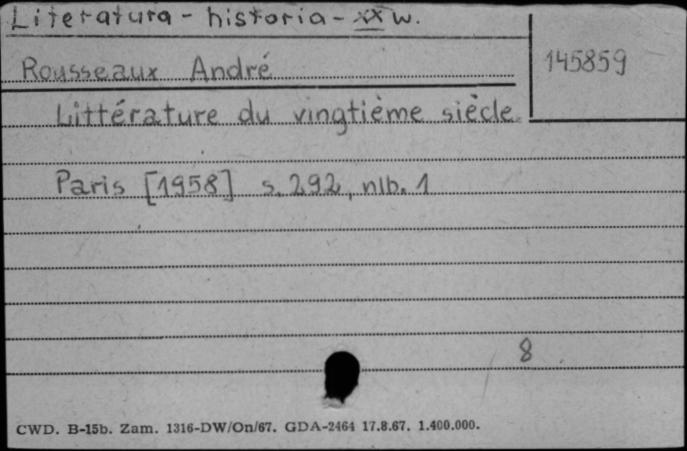 Literatura - historia - XX w.
145859
Rousseaux André
Littérature du vingtième siècle
Paris [1958] s. 292, nlb. 1
8
CWD. B-15b. Zam. 1316-DW/On/67. GDA-2464 17.8.67. 1.400.000.